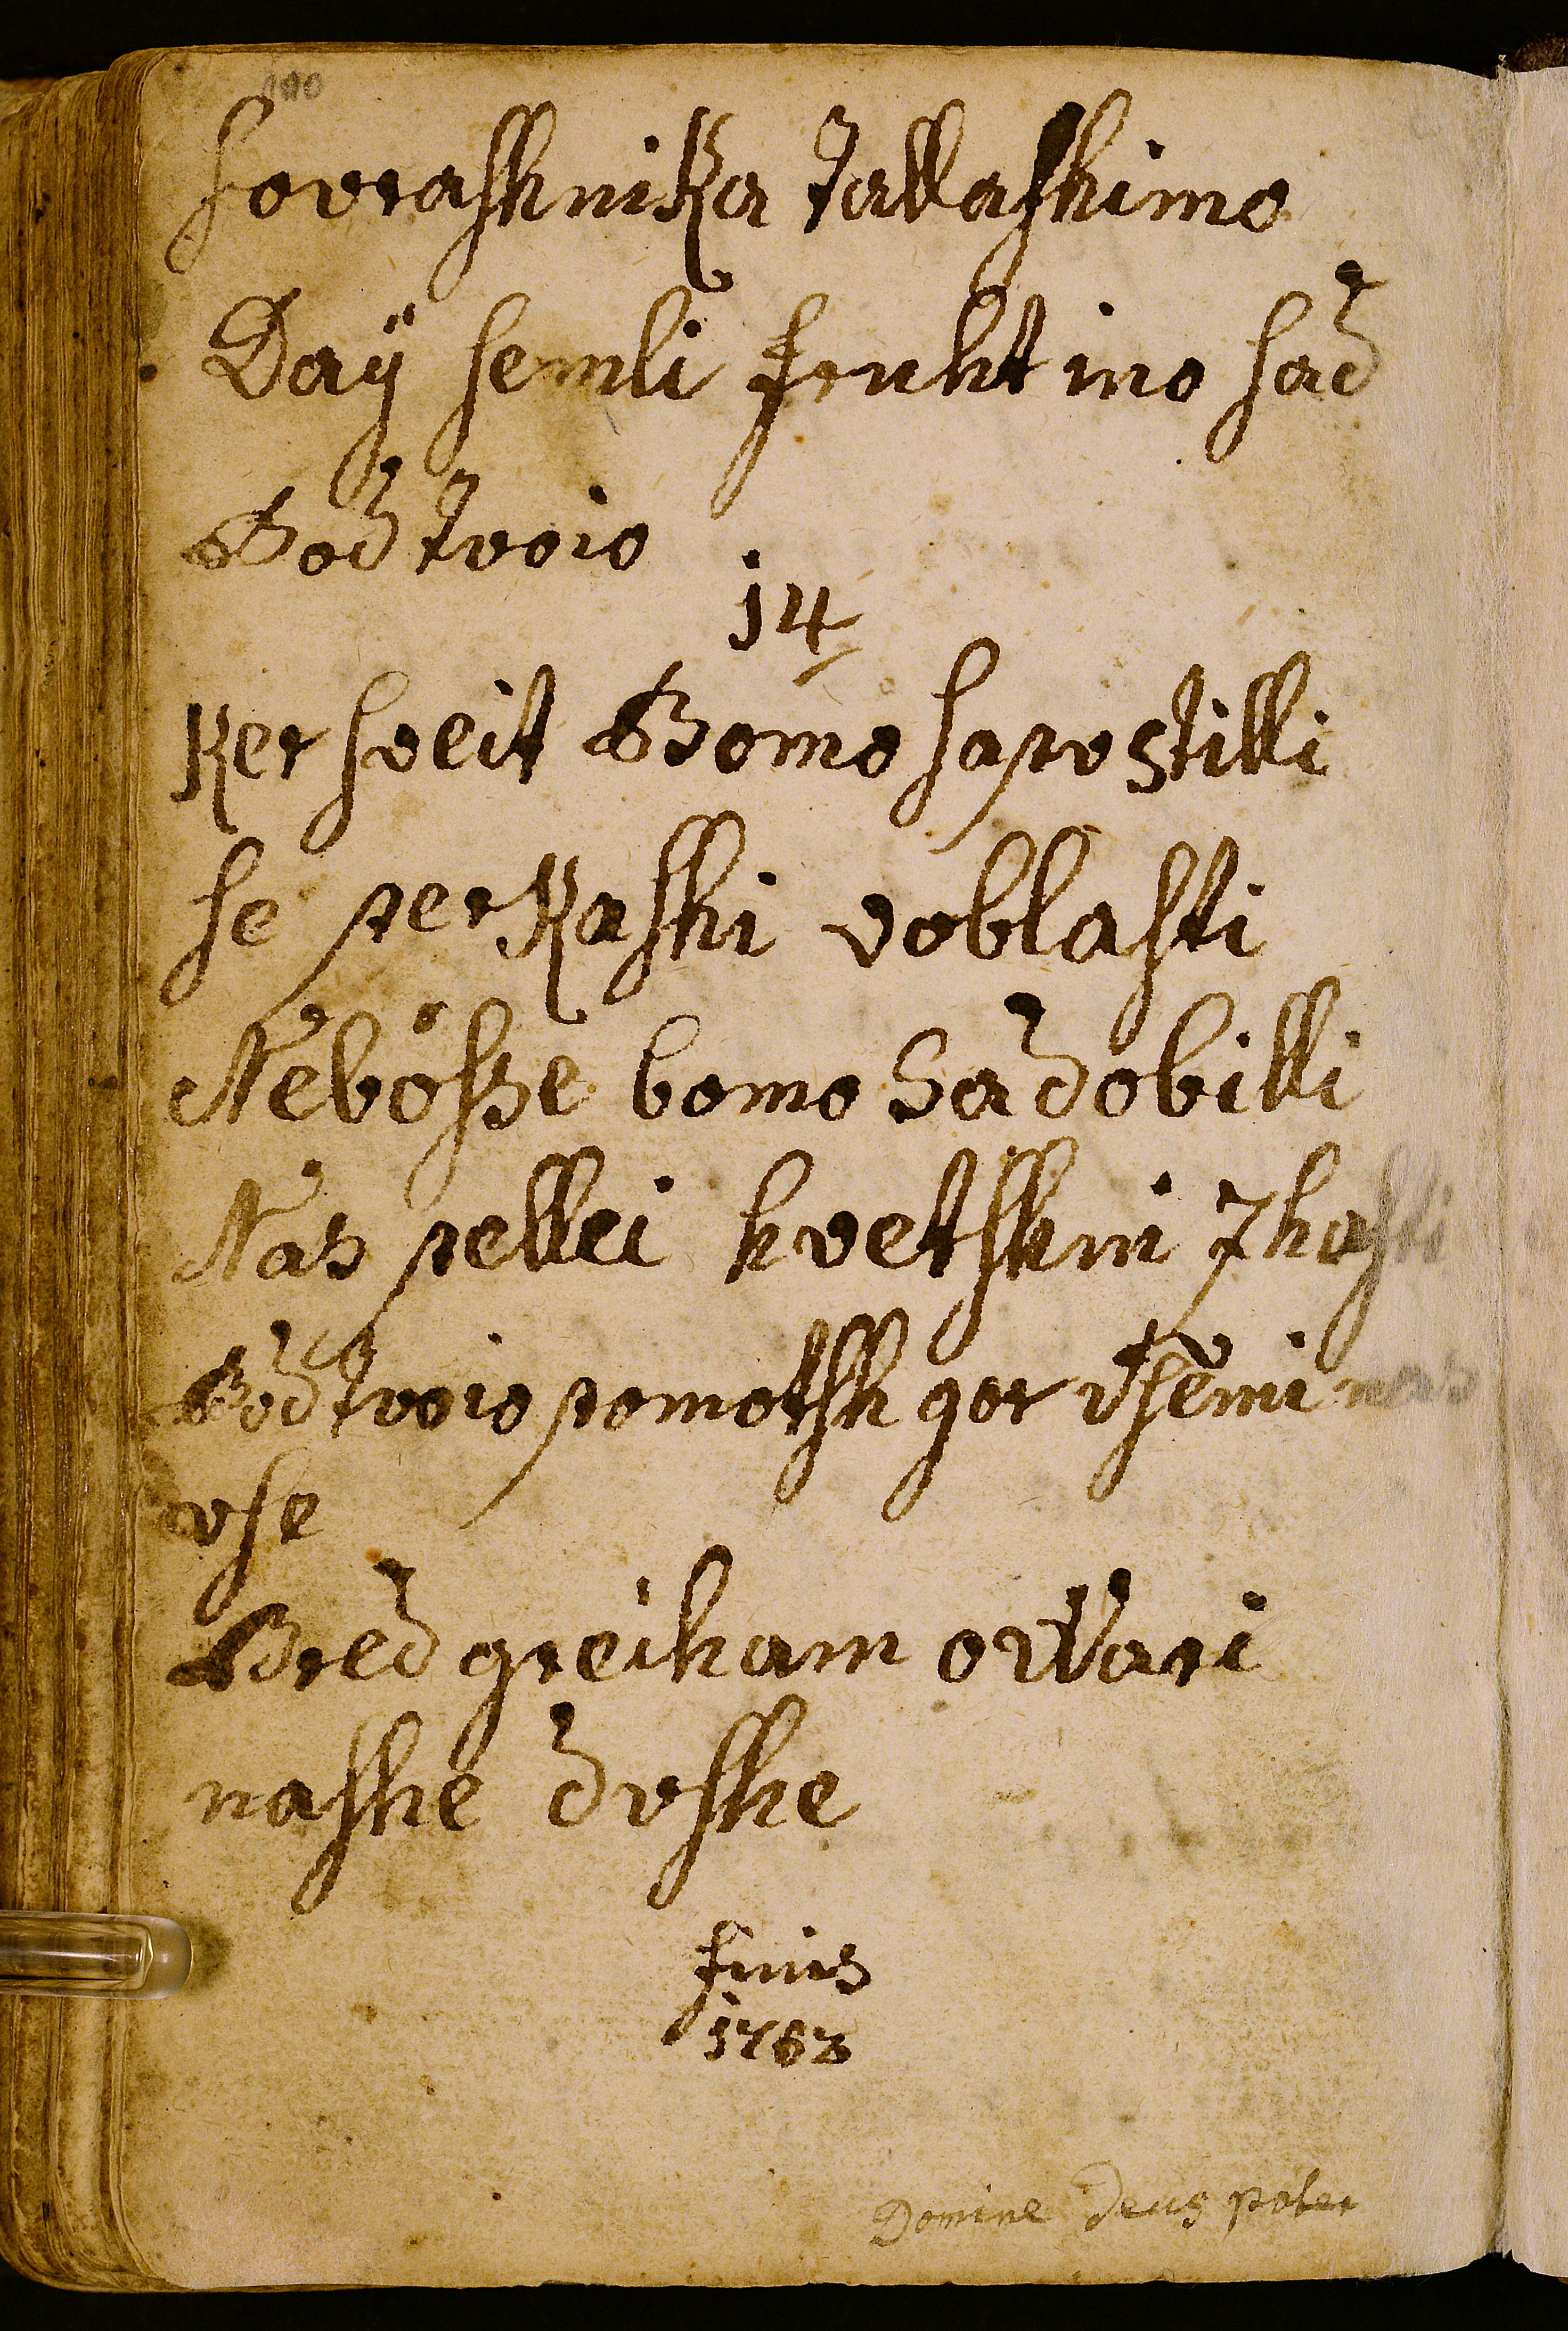 100
ſovraſhnika tallaſhimo
Daÿ ſemli fruht ino ſad
Bod tvoio
14
Ker ſveit Bomo ſapuſtilli
ſe perkaſhi voblaſti
Neböſze bomo Sadobilli
Nas pellei hvetſhni zhaſti
Bod tvoio pomotſh gor vſemi nas
vſe
Pred greiham oWari
naſhe duſhe
finis
1762
Domine Deus pater